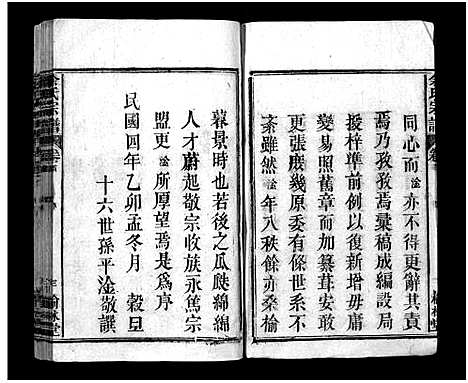 同心而淦亦不得更辭其責
焉乃孜孜焉彙稿成編設局
授梓準前原例少加新增毋庸
變易照舊章而纂葺安敢
更張庶幾原委有條世系不
紊雖然淦年八秩餘亦桑榆
暮景時也若後之瓜瓞綿綿
人才蔚起敬宗收族永篤宗
盟更淦所厚望焉是為序
民國四年乙卯孟冬月 穀旦
十六世孫平淦敬譔
氏宗譜